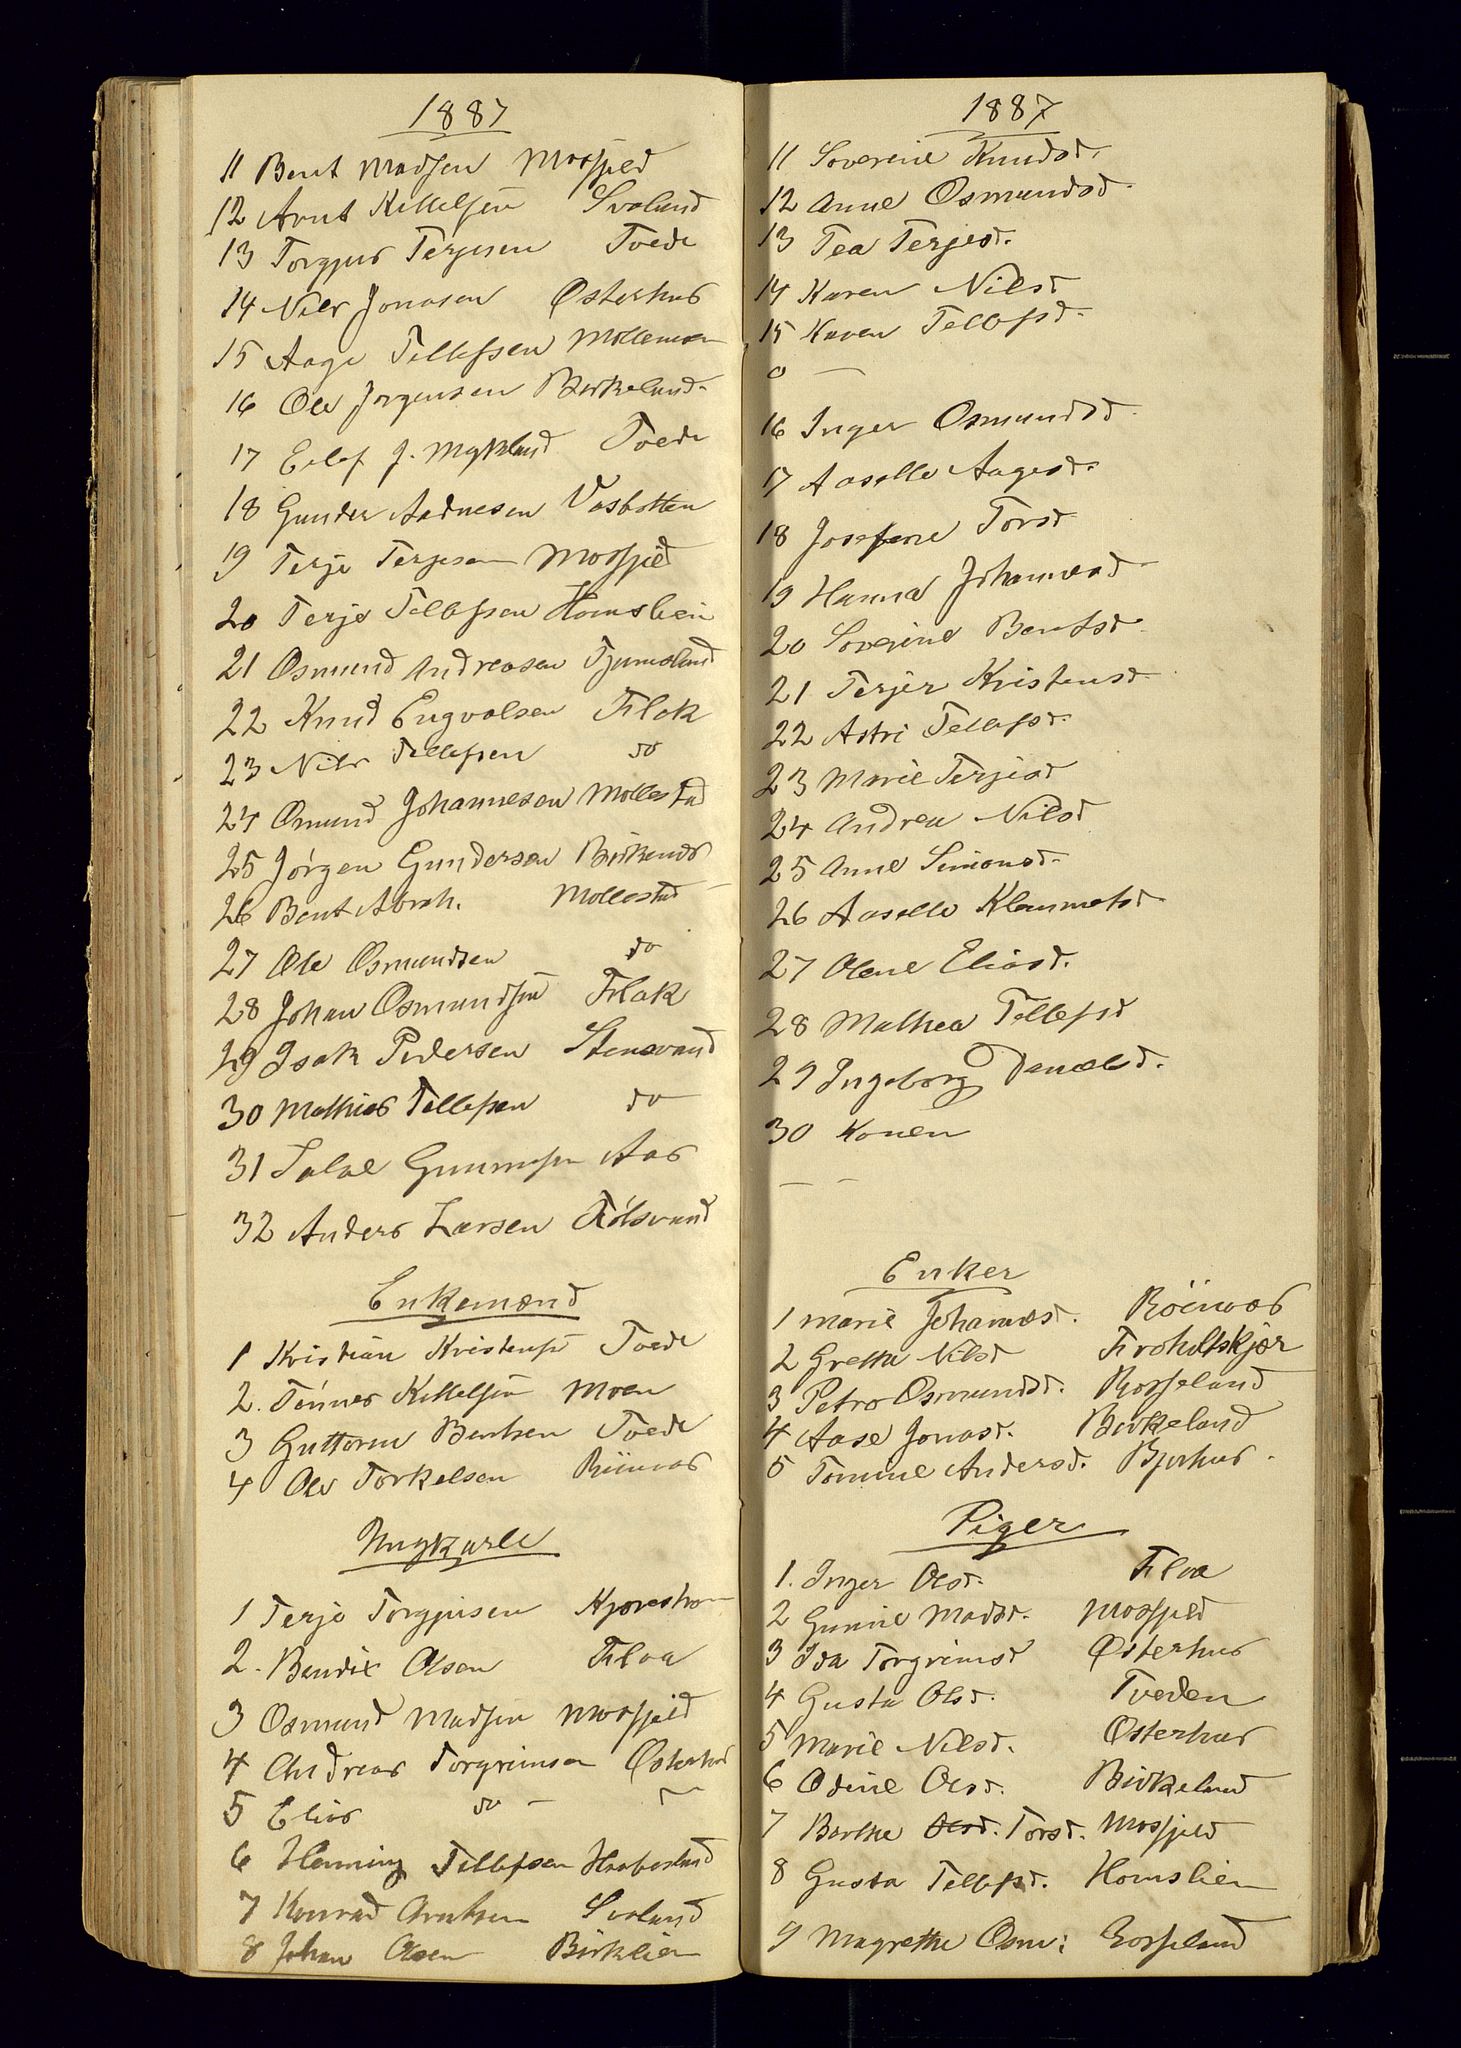 1887
11 Bent Madsen Mosfjeld
12 Arnt Kittelsen Svaland
13 Torgjus Terjesen Tvede
14 Nils Jonasen Østerhus
15 Aage Tellefsen Mollemoen
16 Ole Jørgensen Birkeland
17 Eilef J. Mykland Tvede
18 Gunder Aadnesen Vasbotten
19 Terje Terjesen Mosfjed
20 Terje Tellefsen Homslien
21 Osmund Andreasen Tjumsland
22 Knud Engvolsen Flak
23 Nils Tellefsen do
24 Osmund Johannesen Mollestad
25 Jørgen Gundersen
26 Bent Abrah. Mollestad
27 Ole Osmundsen do
28 Johan Osmundsen Flak
29 Isak Pedersen Stensvand
30 Mathias Tellefsen do
31 Salve Gunnufsen Aas
32 Anders Larsen
Enkemænd
1 Kristian Kristensen Tvede
2. Tønnes Kittelsen Moen
3 Guttorm Bentsen Tvede
4 Ole Torkelsen
Ungkarle
1 Terje Torgjusen
2. Bendix Olsen Floa
3 Osmund Madsen Mosfjeld
4 Andreas Torgrimsen Østerhus
5 Elias do —
6 Henning Tellefsen
7 Konrad Arntsen Svaland
8 Johan Olsen Birklien
1887
11 Soverine Knudsd.
12 Anne Osmundsd.
13 Tea Terjesd.
14 Karen Nilsd
15 Karen Tellefsd.
0 —
16 Inger Osmundsd.
17 Aaselle Aagesd.
18 Josefine Torsd
19 Hanna Johannesd.
20 Soverine Bentsd.
21 Terjer Kristensd.
22 Astri Tellefsd.
23 Marie Terjesd
24 Andrea Nilsd
25 Anne Simonsd.
26 Aaselle Klemmetsd
27 Olene Eliasd.
28 Mathea Tellefsd
29 Ingeborg Danielsd.
30 Konen
— —
Enker
1 Marie Johannesd.
2 Grethe Nilsd Froholtskjær
3 Petro Osmundsd. Rosseland
4 Aase Jonasd. Birkeland
5 Tomine Andersd. Bjorhus.
Piger
1. Inger Olsd. Floa
2 Gunnil Madsd. Mosfjeld
3 Ida Torgrimsd Østerhus
4 Gusta Olsd. Tveden
5 Marie Nilsd. Østerhus
6 Odine Olsd. Birkeland
7 Berthe Olsd. Torsd. Mosfjeld
8 Gusta Tellefsd. Homslien
9 Magrethe Osm: Rosseland